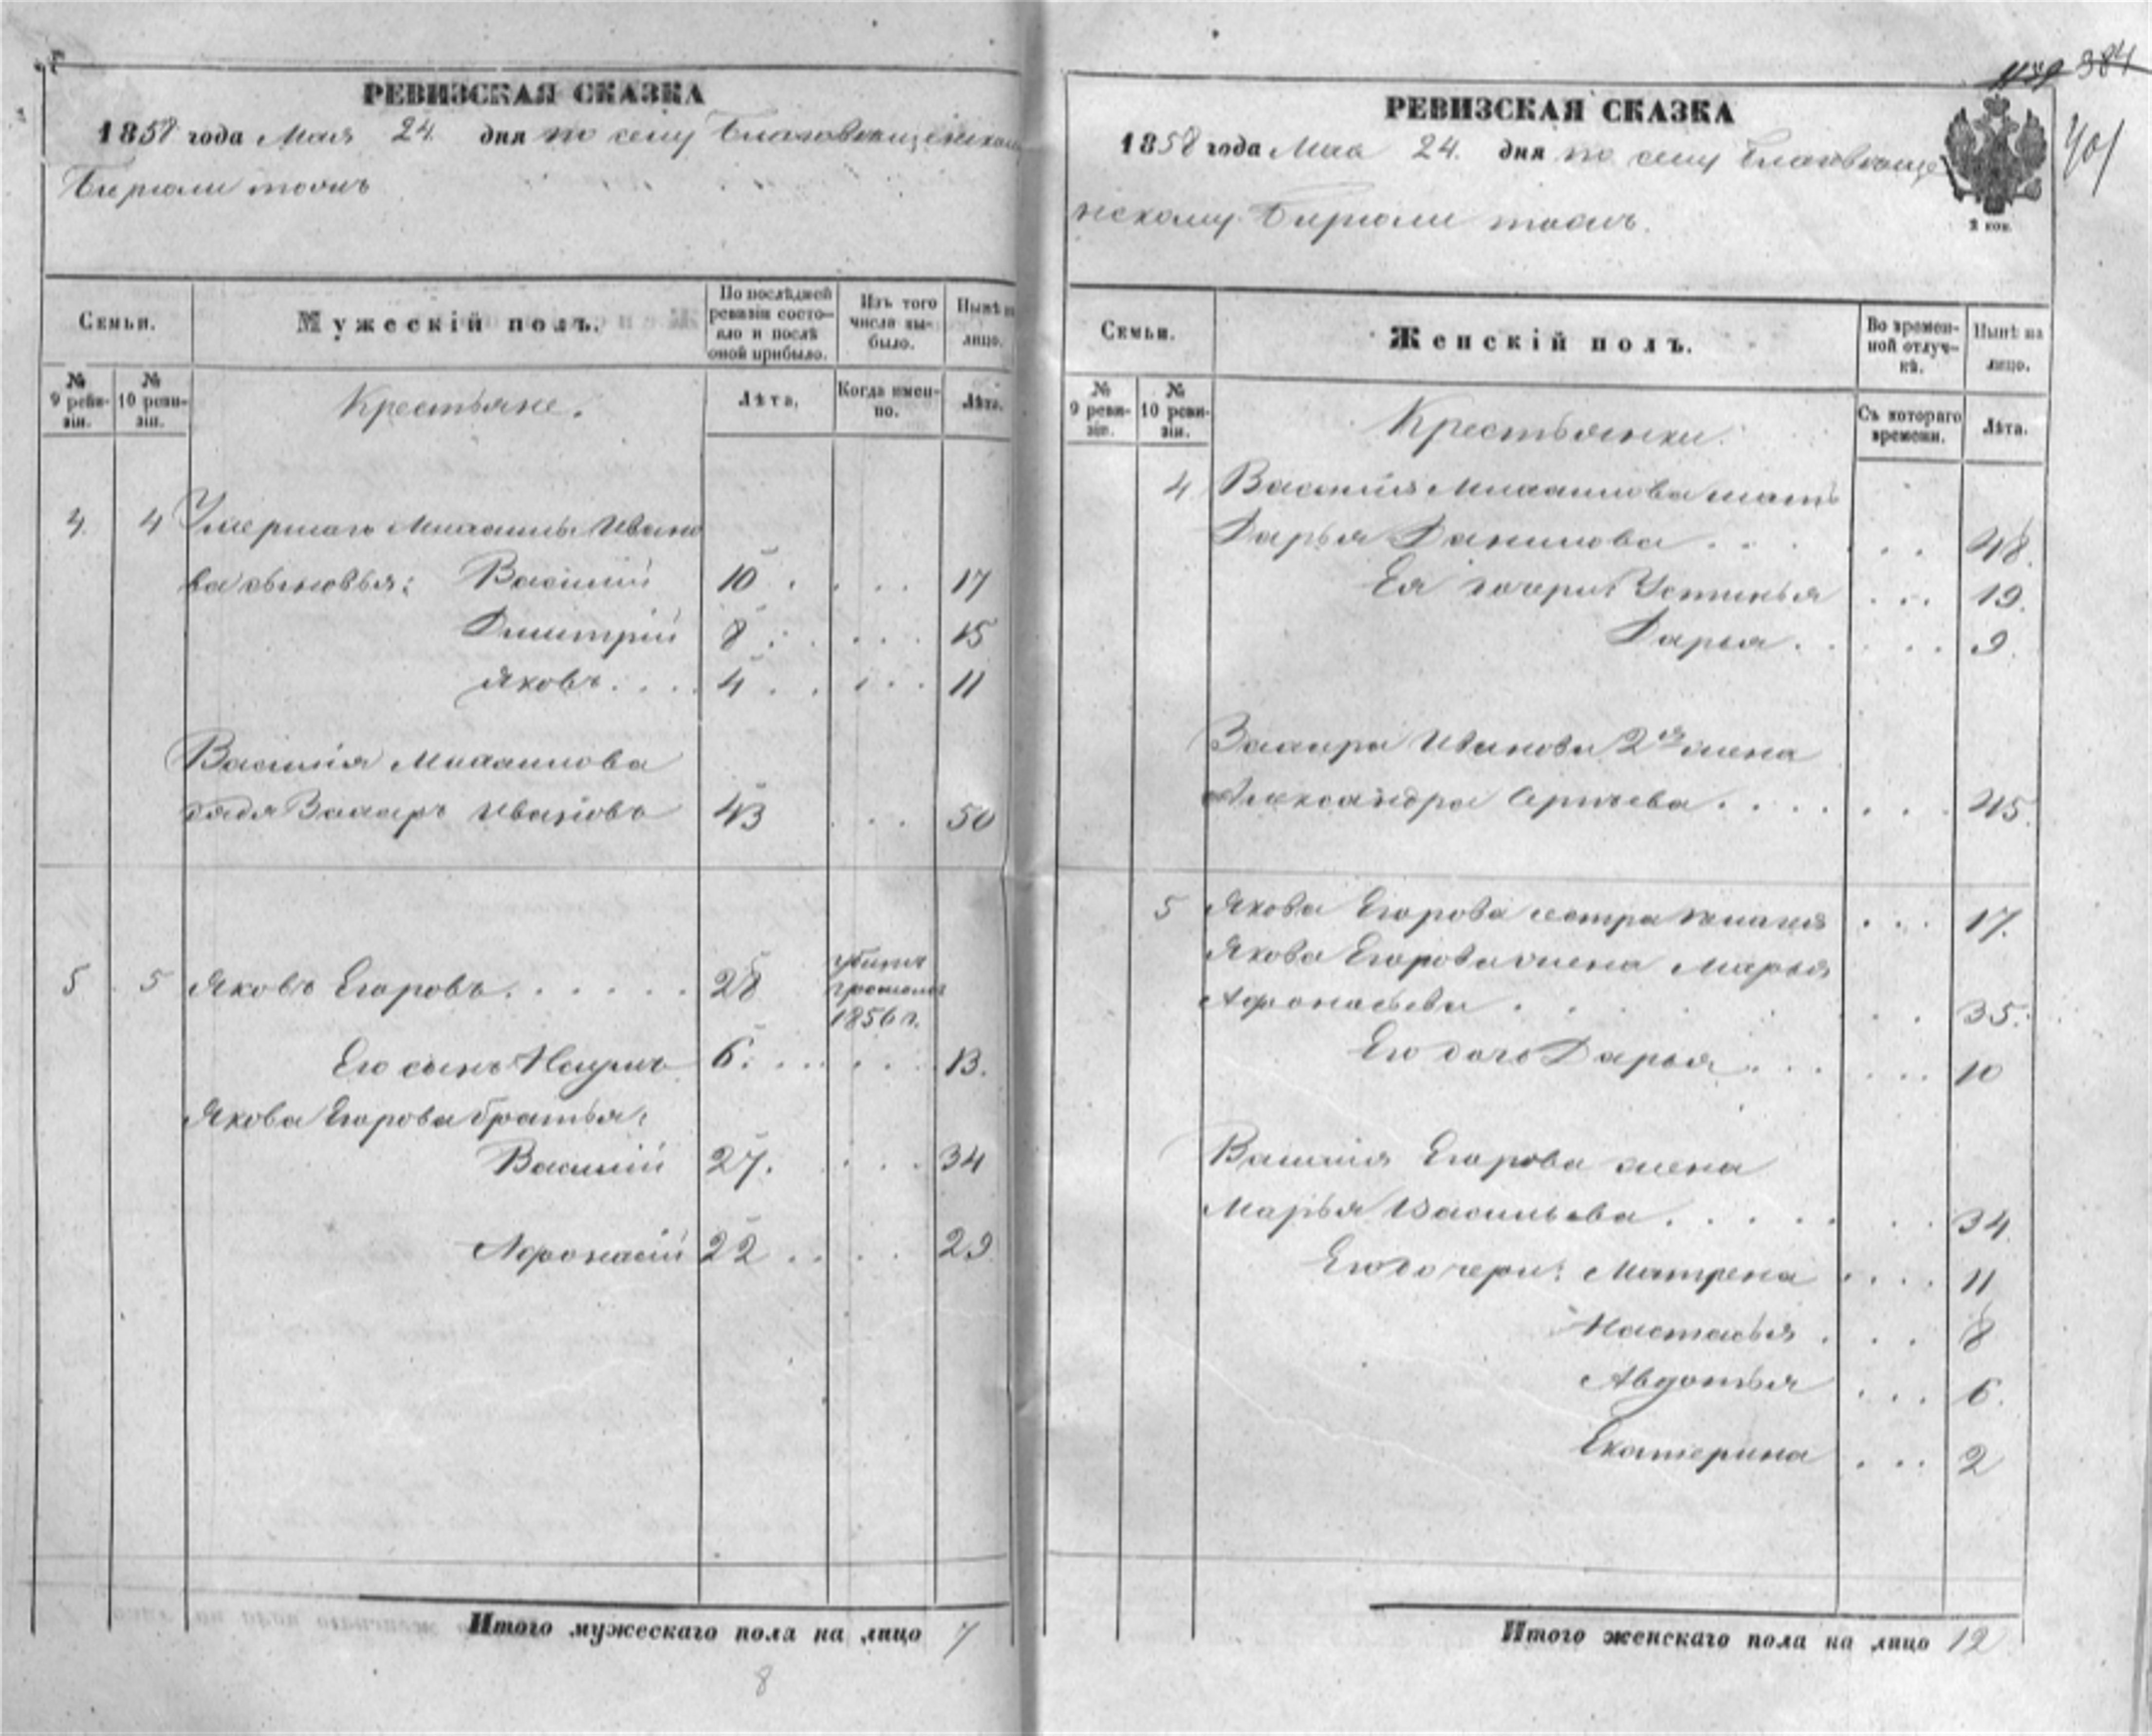 РЕВИЗСКАЯ СКАЗКА
1858 года Мая 24 дня по селу Благовещенском
Бирюли тожъ
Семьи.
Мужескій полъ.
По послѣдней ревизіи состояло и послѣ оной прибыло.
Изъ того числа выбыло.
Нынѣ на лицо.
№ 9 ревизіи.
№ 10 ревизіи.
Крестьяне.
Лѣта.
Когда именно.
Лѣта.
4 4 Умершаго Михаилы Ивано
ва сыновья: Василій 10 . . . . 17
Дмитрій 8 . . . . 15
Яковъ . . . . 4 . . . . . 11
Василія Михаилова
дядя Захаръ Ивановъ 43 . . . 50
5 5 Яковъ Егоровъ . . . . . . 28 убитъ громомъ 1856 г.
Его сынъ Наумъ 6. . . . . . . 13.
Якова Егорова братья:
Василій 27. . . . 34
Афонасій 22 . . . . 29
Итого мужескаго пола на лицо 7
8
РЕВИЗСКАЯ СКАЗКА
384
401
1858 года Мая 24. дня по селу Благовеще
нскому Бирюли тожъ.
2 коп.
Семьи.
Женскій полъ.
Во временной отлучкѣ.
Нынѣ на лицо.
№ 9 ревизіи.
№ 10 ревизіи.
Крестьянки.
Съ котораго времени.
Лѣта.
4 Василія Михаилова мать
Дарья Данилова . . . . . . 48.
Ея дочери: Устинья . . . 19.
Дарья . . . . . 9.
Захара Иванова 2я жена
Александра . . . . . . . 45.
5 Якова Егорова сестра . . . 17.
Якова Егорова жена Марья
Афонасьева . . . . . 35.
Его дочь Дарья . . . . . . 10
Василія Егорова жена
Марья Васильева . . . . . . . 34
Его дочери: Матрена . . . . 11
Настасья . . . 8
Авдотья . . . 6.
Екатерина . . . 2
Итого женскаго пола на лицо 12